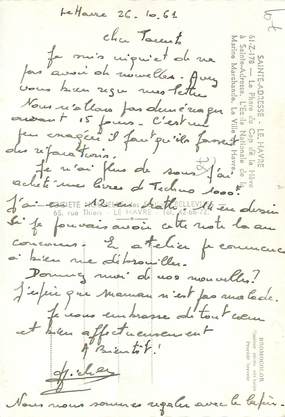 Le Havre 26.10.61
Chers Parents
Je suis inquiet de ne
pas avoir de nouvelles. Avez
vous bien reçu mes lettres
Nous n'allons pas déménager
avant 15 jours. C'est un
peu enragé il faut qu'ils fassent
des réparations.
Je n'ai plus de sous j'ai
acheté mes livres de Techno 1000F
J'ai eu 12 en Maths. 14 en dessin
Si je pouvais avoir cette note la au
concours. En atelier je commence
à bien me débrouiller.
Donnez moi de vos nouvelles?
J'espère que maman n'est pas malade.
Je vous embrasse de tout cœur
et bien affectueusement
A Bientôt!
Michel
Nous nous sommes régalés avec le lapin.
SAINTE-ADRESSE - LE HAVRE
61-Z-178 - Le Phare du Cap de la Hève
à Sainte-Adresse. L'École Nationale de
Marine Marchande. La Ville du Havre.
65, rue Thiers - LE HAVRE - Tél.